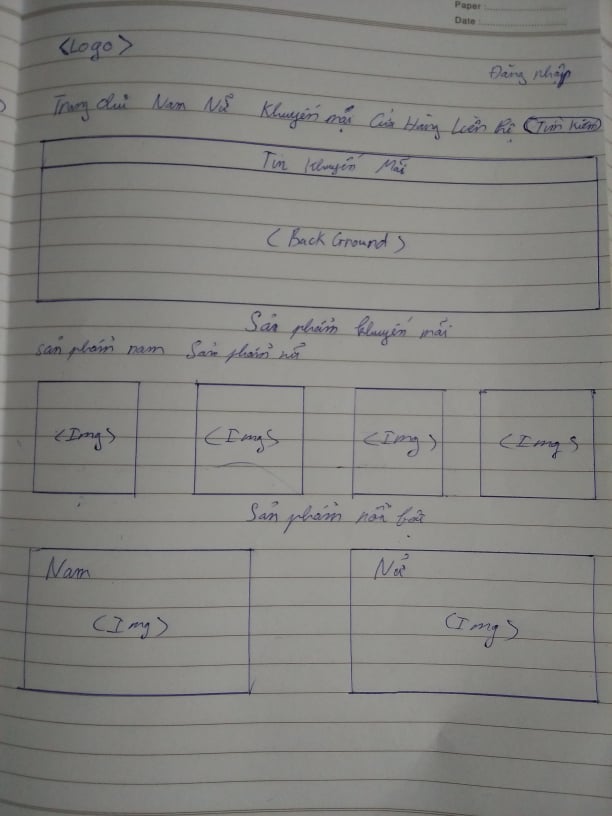 Paper :
Date :
<Logo>
Đăng nhập
Trang chủ Nam Nữ Khuyến mại Cửa Hàng Liên hệ Tìm kiếm
Tin khuyến Mãi
(Back Ground)
Sản phẩm khuyến mãi
sản phẩm nam Sản phẩm nữ
<Img> <Img> <Img> <Img>
Sản phẩm nổi bật
Nam Nữ
<Img> <Img>